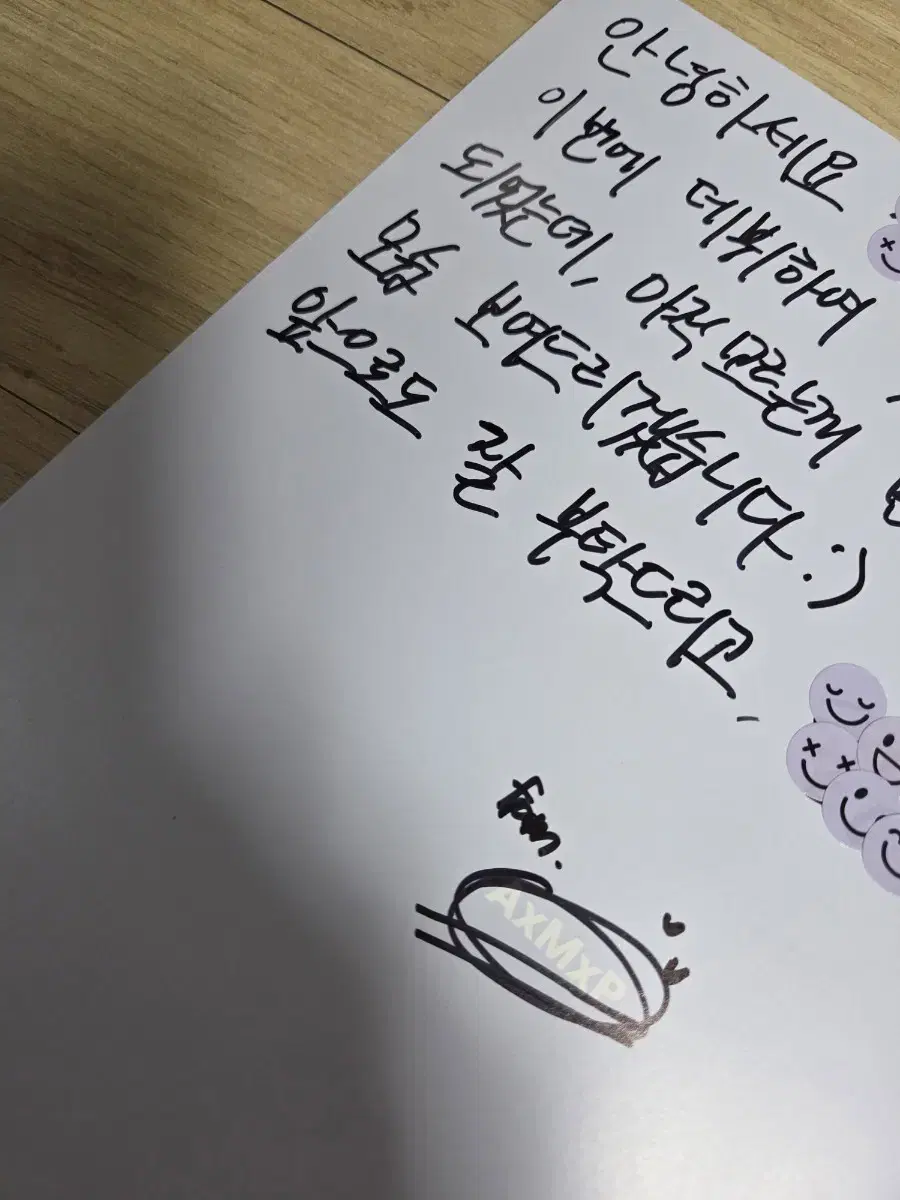 안녕하세요
이번에 데뷔하여
되었는데, 아직 모르는게
모습 보여드리겠습니다 :)
앞으로도 잘 부탁드리고,
from.
AxMxP